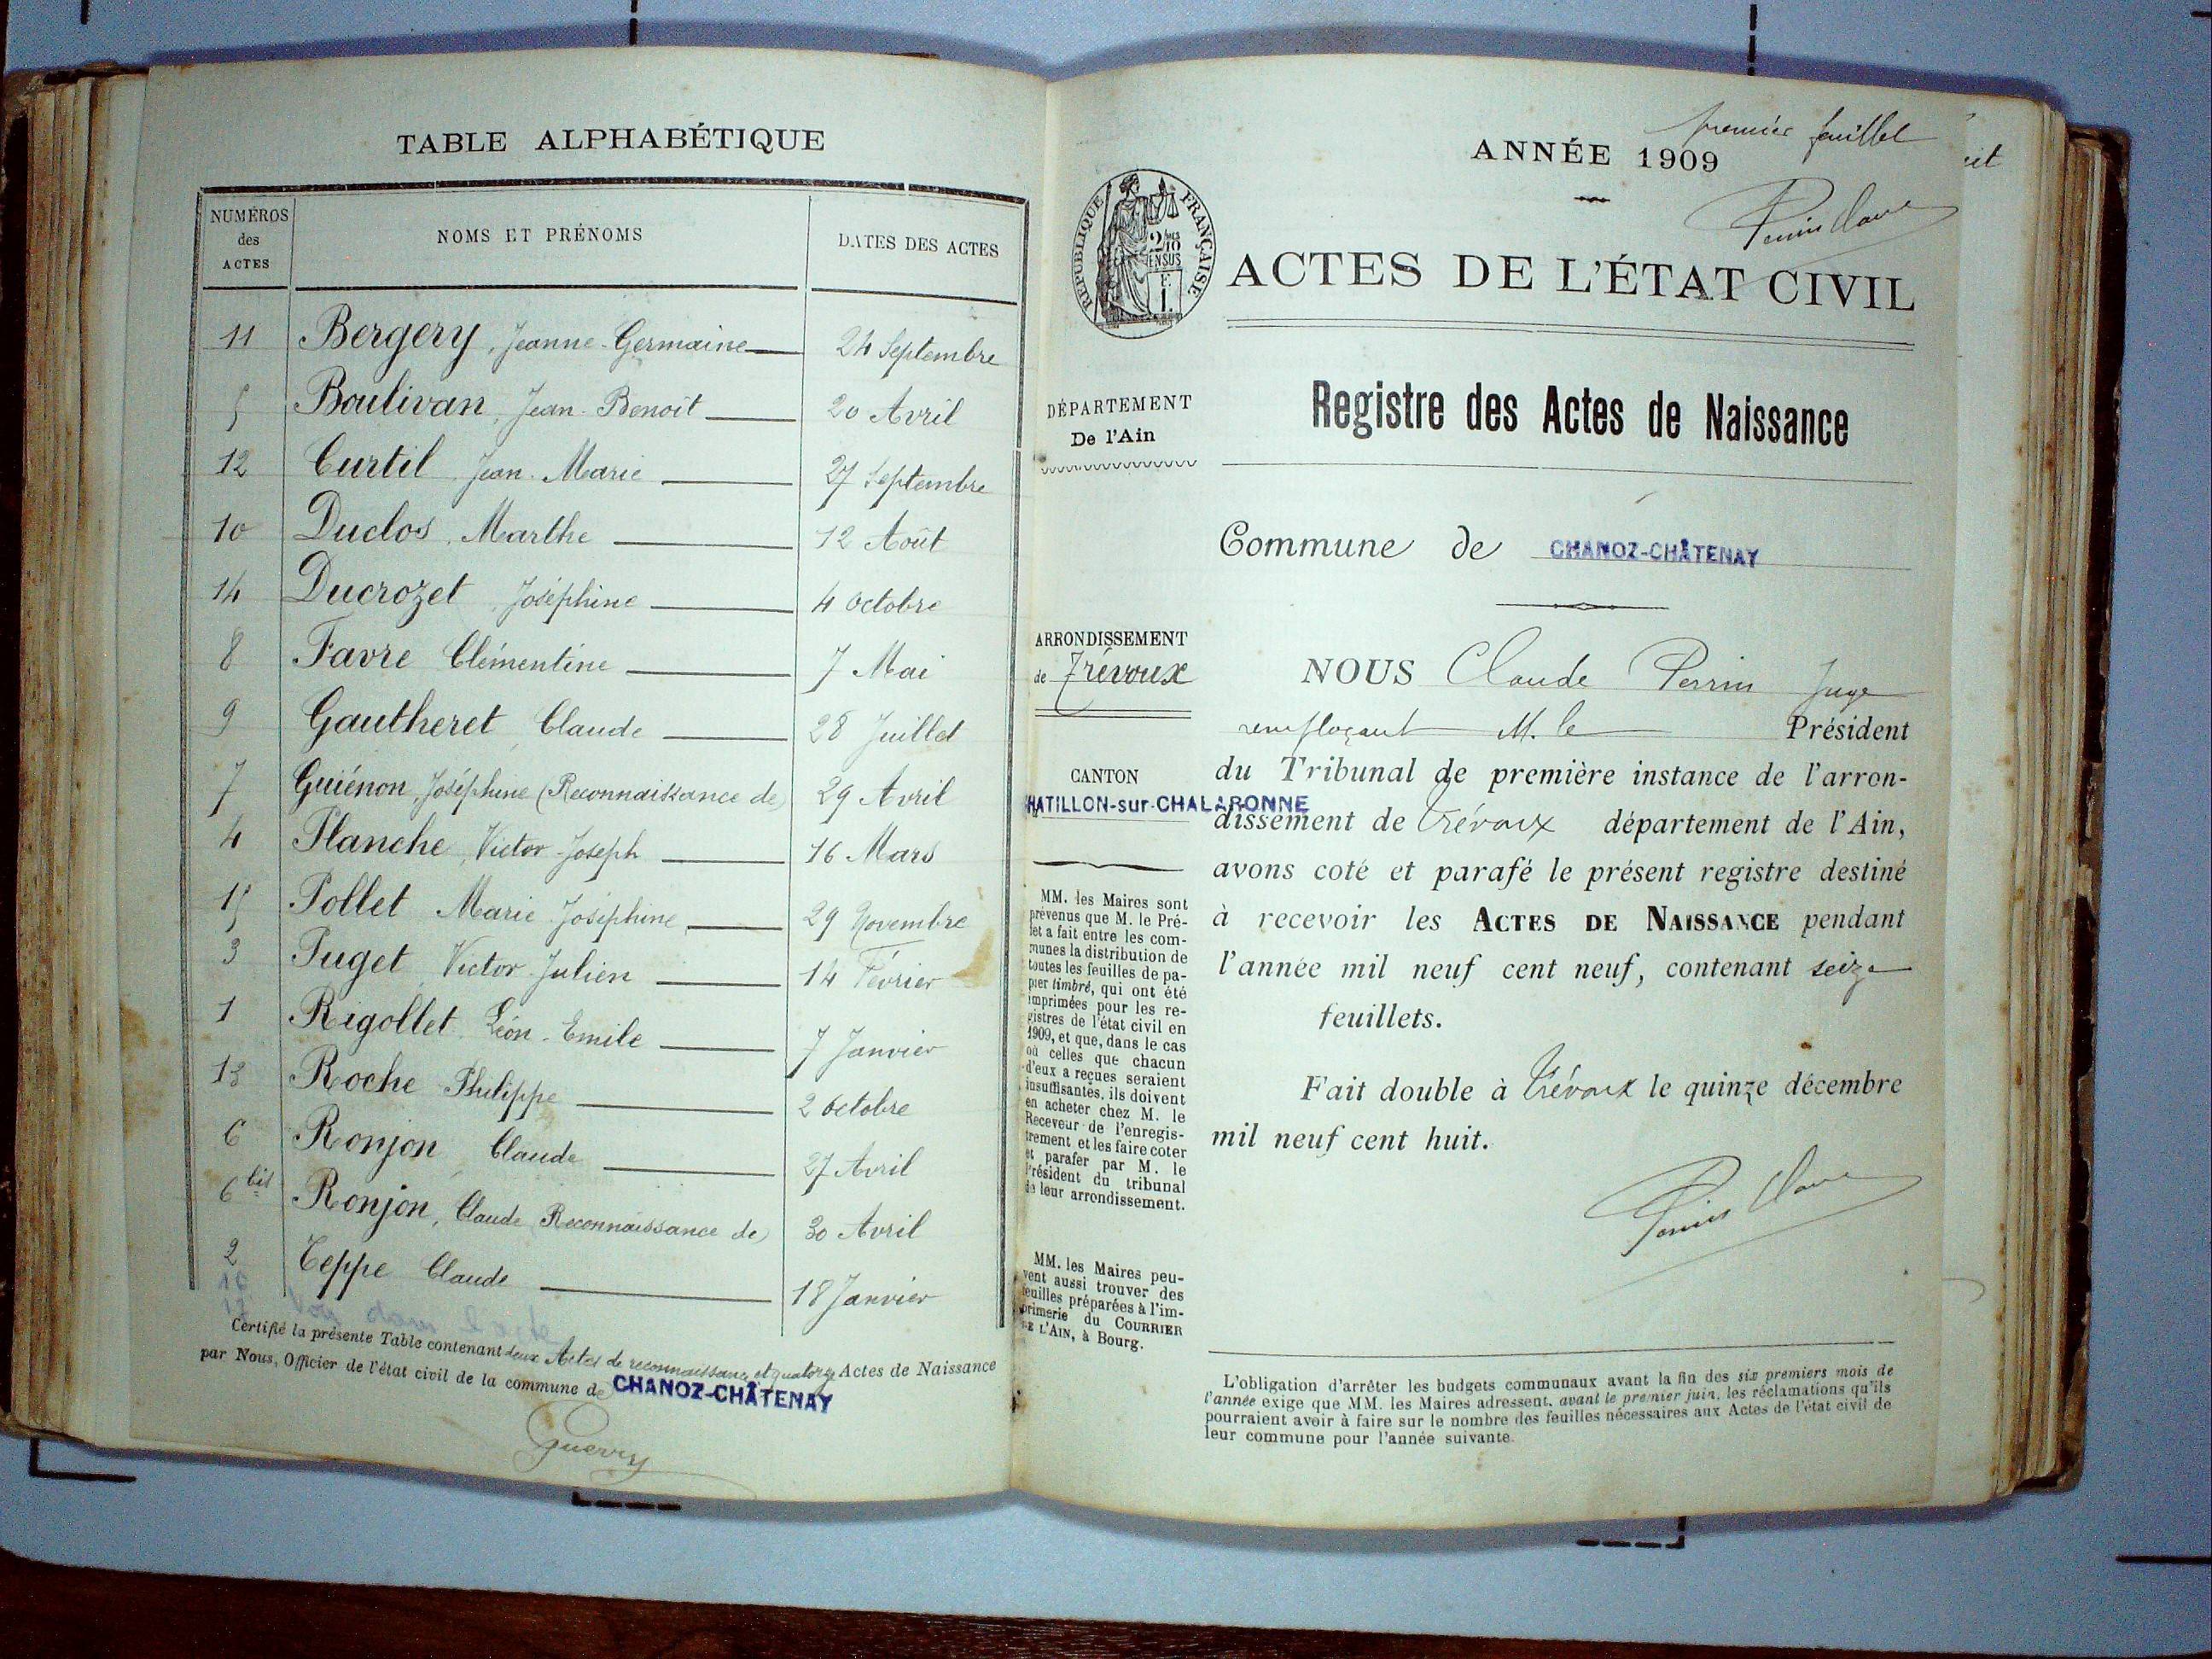 TABLE ALPHABÉTIQUE
NUMÉROS des ACTES NOMS ET PRÉNOMS DATES DES ACTES
11 Bergery, Jeanne-Germaine 24 Septembre
5 Boulivan, Jean-Benoit 20 Avril
12 Curtil Jean-Marie 27 Septembre
10 Duclos, Marthe 12 Août
14 Ducrozet, Joséphine 4 Octobre
8 Favre Clémentine 7 Mai
9 Gautheret, Claude 28 Juillet
7 Guiénon, Joséphine (Reconnaissance de) 29 Avril
4 Planche, Victor-Joseph 16 Mars
15 Pollet Marie Joséphine 29 Novembre
3 Puget Victor-Julien 14 Février
1 Rigollet Léon-Emile 7 Janvier
13 Roche Philippe 2 Octobre
6 Ronjon Claude 27 Avril
6 bis Ronjon, Claude (Reconnaissance de) 30 Avril
2 Teppe Claude 18 Janvier
Certifié la présente Table contenant deux Actes de reconnaissance et quatorze Actes de Naissance
par Nous, Officier de l'état civil de la commune de CHANOZ-CHÂTENAY
Guerry
premier feuillet
ANNÉE 1909
RÉPUBLIQUE FRANÇAISE
ACTES DE L'ÉTAT CIVIL
DÉPARTEMENT
De l'Ain
Registre des Actes de Naissance
Commune de CHANOZ-CHÂTENAY
ARRONDISSEMENT
de Trévoux
CANTON
HATILLON-sur-CHALARONNE
MM. les Maires sont
prévenus que M. le Pré-
fet a fait entre les com-
munes la distribution de
toutes les feuilles de pa-
pier timbré, qui ont été
imprimées pour les re-
gistres de l'état civil en
1909, et que, dans le cas
où celles que chacun
d'eux a reçues seraient
insuffisantes, ils doivent
en acheter chez M. le
Receveur de l'enregis-
trement et les faire coter
et parafer par M. le
Président du tribunal
de leur arrondissement.
MM. les Maires peu-
vent aussi trouver des
feuilles préparées à l'im-
primerie du COURRIER
DE L'AIN, à Bourg.
NOUS Claude Perrin Juge
remplaçant M. le Président
du Tribunal de première instance de l'arron-
dissement de Trévoux département de l'Ain,
avons coté et parafé le présent registre destiné
à recevoir les ACTES DE NAISSANCE pendant
l'année mil neuf cent neuf, contenant seize
feuillets.
Fait double à Trévoux le quinze décembre
mil neuf cent huit.
L'obligation d'arrêter les budgets communaux avant la fin des six premiers mois de
l'année exige que MM. les Maires adressent, avant le premier juin, les réclamations qu'ils
pourraient avoir à faire sur le nombre des feuilles nécessaires aux Actes de l'état civil de
leur commune pour l'année suivante.